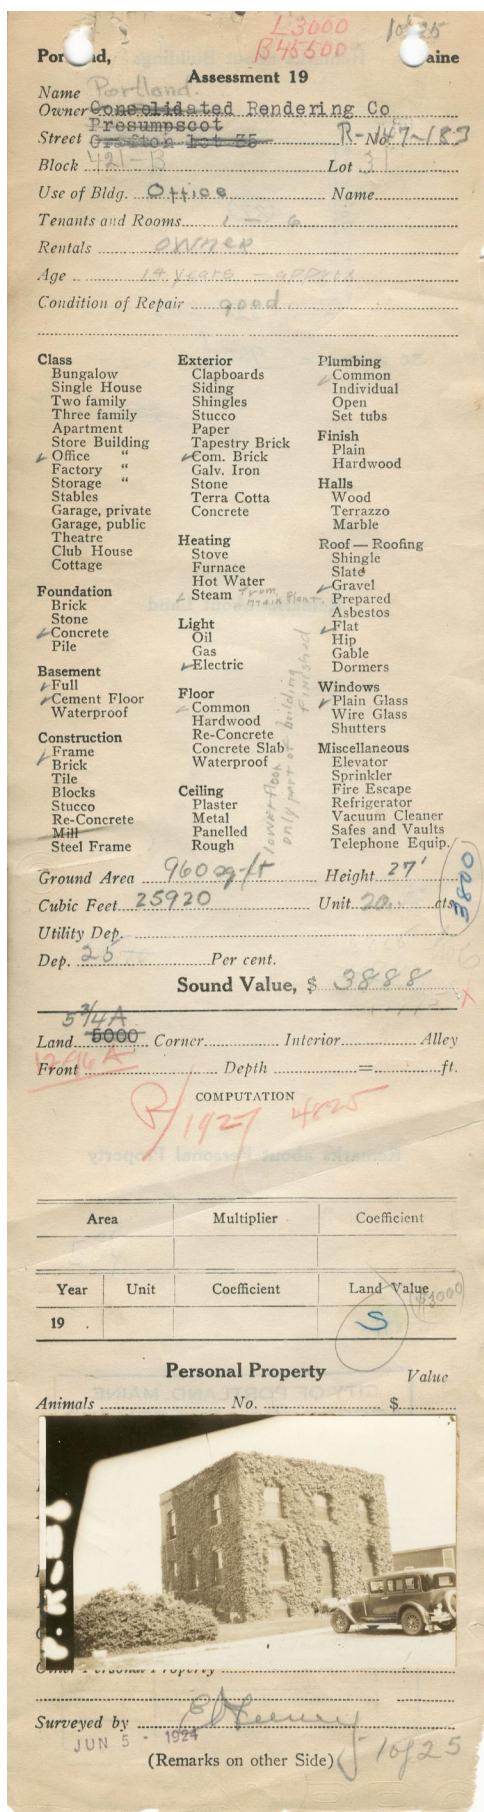 L3000
B45500
1of25
Portland, Maine
Assessment 19
Name Portland.
Owner Consolidated Rendering Co
Presumpscot
Street Grafton Lot 35 R-No 47-183
Block 421-B Lot 31
Use of Bldg. Office Name
Tenants and Rooms 1 - 6
Rentals owner
Age 14 years - approx
Condition of Repair good.
Class
Bungalow
Single House
Two family
Three family
Apartment
Store Building
Office "
Factory "
Storage "
Stables
Garage, private
Garage, public
Theatre
Club House
Cottage
Foundation
Brick
Stone
Concrete
Pile
Basement
Full
Cement Floor
Waterproof
Construction
Frame
Brick
Tile
Blocks
Stucco
Re-Concrete
Mill
Steel Frame
Exterior
Clapboards
Siding
Shingles
Stucco
Paper
Tapestry Brick
Com. Brick
Galv. Iron
Stone
Terra Cotta
Concrete
Heating
Stove
Furnace
Hot Water
Steam from main Plant
Light
Oil
Gas
Electric
Floor
Common
Hardwood
Re-Concrete
Concrete Slab
Waterproof
Ceiling
Plaster
Metal
Panelled
Rough
lower floor
only part of building
finished
Plumbing
Common
Individual
Open
Set tubs
Finish
Plain
Hardwood
Halls
Wood
Terrazzo
Marble
Roof — Roofing
Shingle
Slate
Gravel
Prepared
Asbestos
Flat
Hip
Gable
Dormers
Windows
Plain Glass
Wire Glass
Shutters
Miscellaneous
Elevator
Sprinkler
Fire Escape
Refrigerator
Vacuum Cleaner
Safes and Vaults
Telephone Equip.
Ground Area 960 sq-ft Height 27'
Cubic Feet 25920 Unit 20 cts.
3800
Utility Dep.
Dep. 25 Per cent.
Sound Value, $ 3888
5 3/4 A
Land 5000 Corner Interior Alley
Front Depth = ft.
COMPUTATION
R/1927 4825
Area Multiplier Coefficient
Year Unit Coefficient Land Value
$3000
19 S
Personal Property Value
Animals No. $
Other Personal Property
Surveyed by
JUN 5 - 1924
1 of 25
(Remarks on other Side)